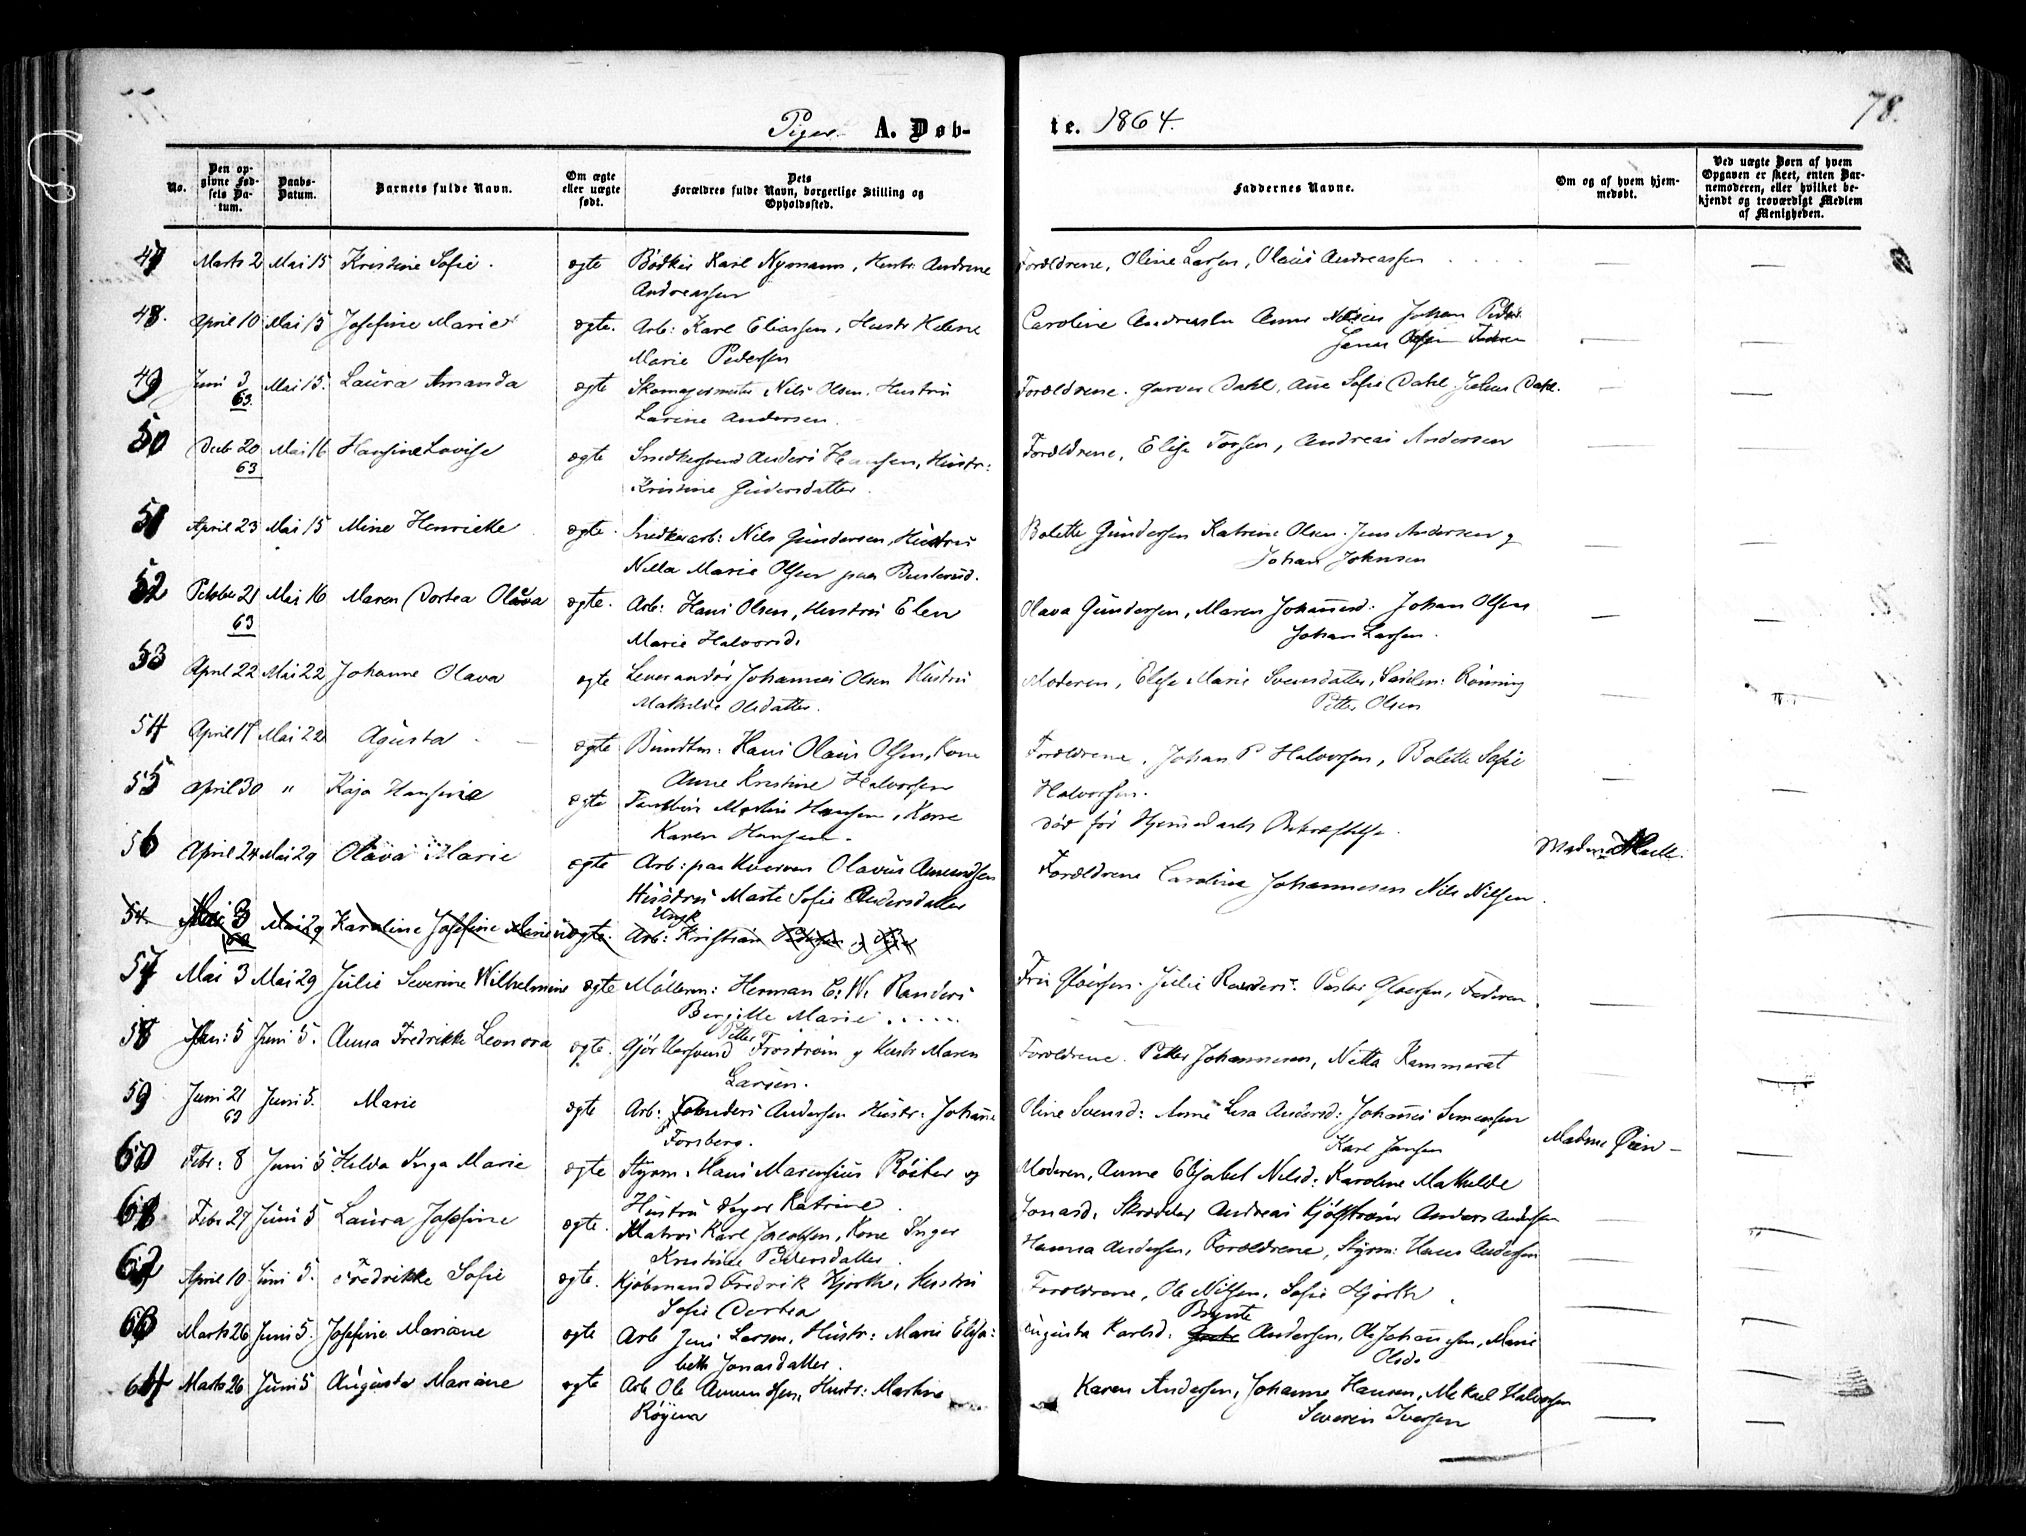 Piger. A. Døb-
te. 1864.
78.
No.
Den op-
givne Fød-
sels Da-
tum.
Daabs-
Datum.
Barnets fulde Navn.
Om ægte
eller uægte
født.
Dets
Forældres fulde Navn, borgerlige Stilling og
Opholdssted.
Faddernes Navne.
Om og af hvem hjem-
medøbt.
Ved uægte Børn af hvem
Opgaven er skeet, enten Bar-
nemoderen, eller hvilket be-
kjendt og troværdigt Medlem
af Menigheden.
47 Marts 2 Mai 15 Kristine Sofie. ægte Bødker Karl Nymann, Hustr: Andrine Forældrene, Oline Larsen, Olaus Andreassen — —
Andreassen
48. April 10 Mai 15 Josefine Marie ægte. Arb: Karl Eliassen, Hustr Helene Caroline Anne Johan
Marie Pedersen — —
49 Juni 3 Mai 15. Laura Amanda ægte Skomagermester Nils Olsen. Hustru Forældrene. Garver Dahl, Ane Sofie Dahl Julius Dahl. — —
63.
Larine Andersen.
50 Decb 20 Mai 16 Hansine Lovise ægte Snedkersvend Anders Hansen, Hustr: Forældrene, Elise Torsen, Andreas Andersen
63
Kristine Gudersdatter.
51 April 23 Mai 15 Mine Henrikke ægte. Snedkerarb: Nils Gundersen, Hustru Bolette Gundersen Katrine Olsen. Jens Andersen g — —
Nilla Marie Olsen paa Buskerud. Johan Johnsen
52 October 21 Mai 16 Maren Dortea Olava ægte. Arb: Hans Olsen, Hustru Elen Olava Gundersen, Maren Johannesd: Johan Olsen — —
63
Marie Halvorsd: Johan Larsen.
53 April 22 Mai 22 Johanne Olava ægte Leverandør Johannes Olsen Hustru Moderen, Elise Marie Svensdatter, Sadelm: Rønning — "
Mathilde Olsdatter. Petter Olsen
54 April 17 Mai 22 Agusta — ægte Bundtm: Hans Olaus Olsen, Kone Forældrene, Johan P Halvorsen, Bolette Sofie — —
Anne Kristine Halvorsen Halvorsen.
55 April 30 " Kaja Hansine ægte Martin Hansen, Kone død før Hjemmedaab Bekræftelse.
Karen Hansen.
56 April 24 Mai 29 Olava Marie ægte Arb: paa Kværven Olavus Amundsen Forældrene Caroline Johannesen Nils Nilsen. —
Hustru Marte Sofie Andersdatter
54. Mai 3 Mai 29 Karoline Josefine Marie uægte. Arb: Kristian Pedersen
57 Mai 3 Mai 29 Julie Severine Wilhelmine ægte Møllerm: Herman C: W: Randers Fru Gløersen. Julie Randers. Pastor Gløersen, Faderen — —
Bergitte Marie . . . . .
58 Jan: 5 Juni 5. Anna Fredrikke Leonora ægte. Petter Froström g Hustr Maren Forældrene. Petter Johannesen, Netta Kammerat — —
Larsen.
59 Juni 21 Juni 5. Marie ægte Arb: Anders Andersen Hustr: Johanne Oline Svensd: Anne Lisa Andersd: Johannes Simensen
63
Forsberg. Karl Jansen Madme Øien —
60 Febr: 8 Juni 5. Hilda Inga Marie ægte Styrm. Hans Marensius Röiter og Moderen, Anne Elisabet Nilsd: Karoline Mathilde —
Hustru Inger Katrine. Jonasd. Skrædder Andreas Kjølstrøm Anders Andersen
61 Febr 27 Juni 5 Laura Josefine ægte. Matros Karl Jacobsen, Kone Inger Hanna Andersen, Forældrene, Styrm: Hans Andersen — "
Kristine Pedersdatter.
62 April 10 Juni 5. Fredrikke Sofie ægte. Kjøbmand Fredrik Hjorth, Hustru Forældrene, Ole Nilsen, Sofie Hjorth. — —
Sofie Dortea
63 Marts 26 Juni 5. Josefine Mariane ægte Arb Jens Larsen, Hustr: Marie Elisa: Augusta Karlsd. Bernte Andersen, Ole Johannesen, Marie — —
beth Jonasdatter. Olsd.
64 Marts 26 Juni 5 Augusta Mariane ægte Arb Ole Amundsen, Hustr: Martine Karen Andersen, Johanne Hansen, Mekael Halvorsen
Røyna Severin Iversen — —